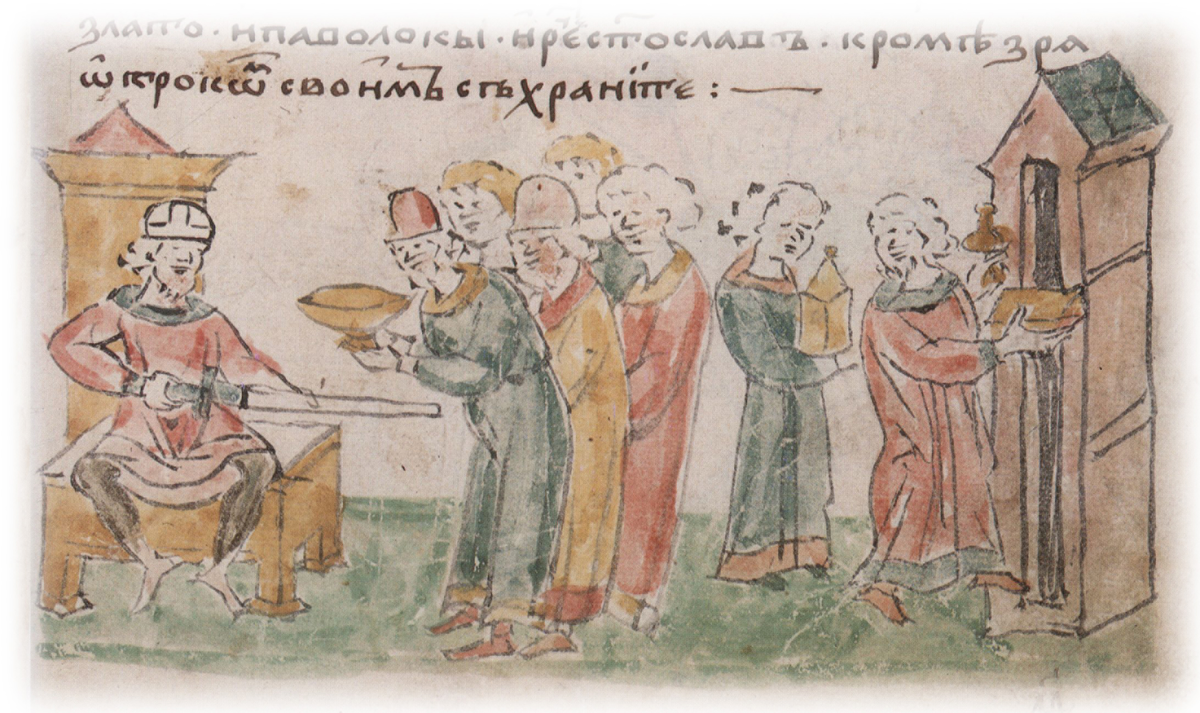 злато · ипаволокы · иреⷱ҇ст҃ославъ · кромѣ зрѧ
ѡтрокѡⷨ своимъ съхранїте : —